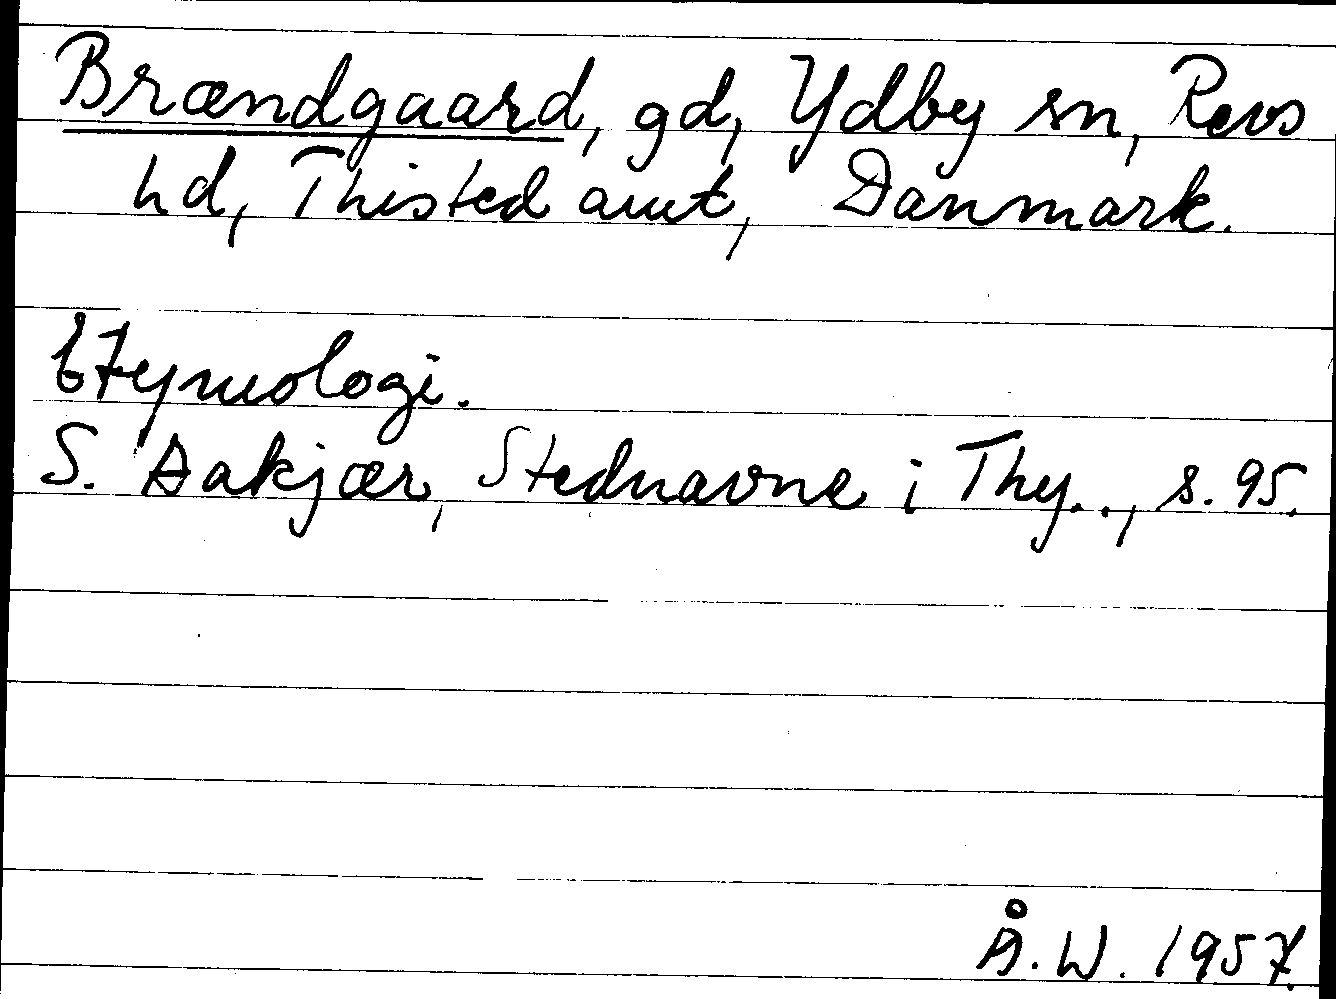 Brændgaard, gd, Ydby sn, Revs
hd, Thisted amt, Danmark.
Etymologi.
S. Aakjær, Stednavne i Thy.., s. 95.
Å.W. 1957.